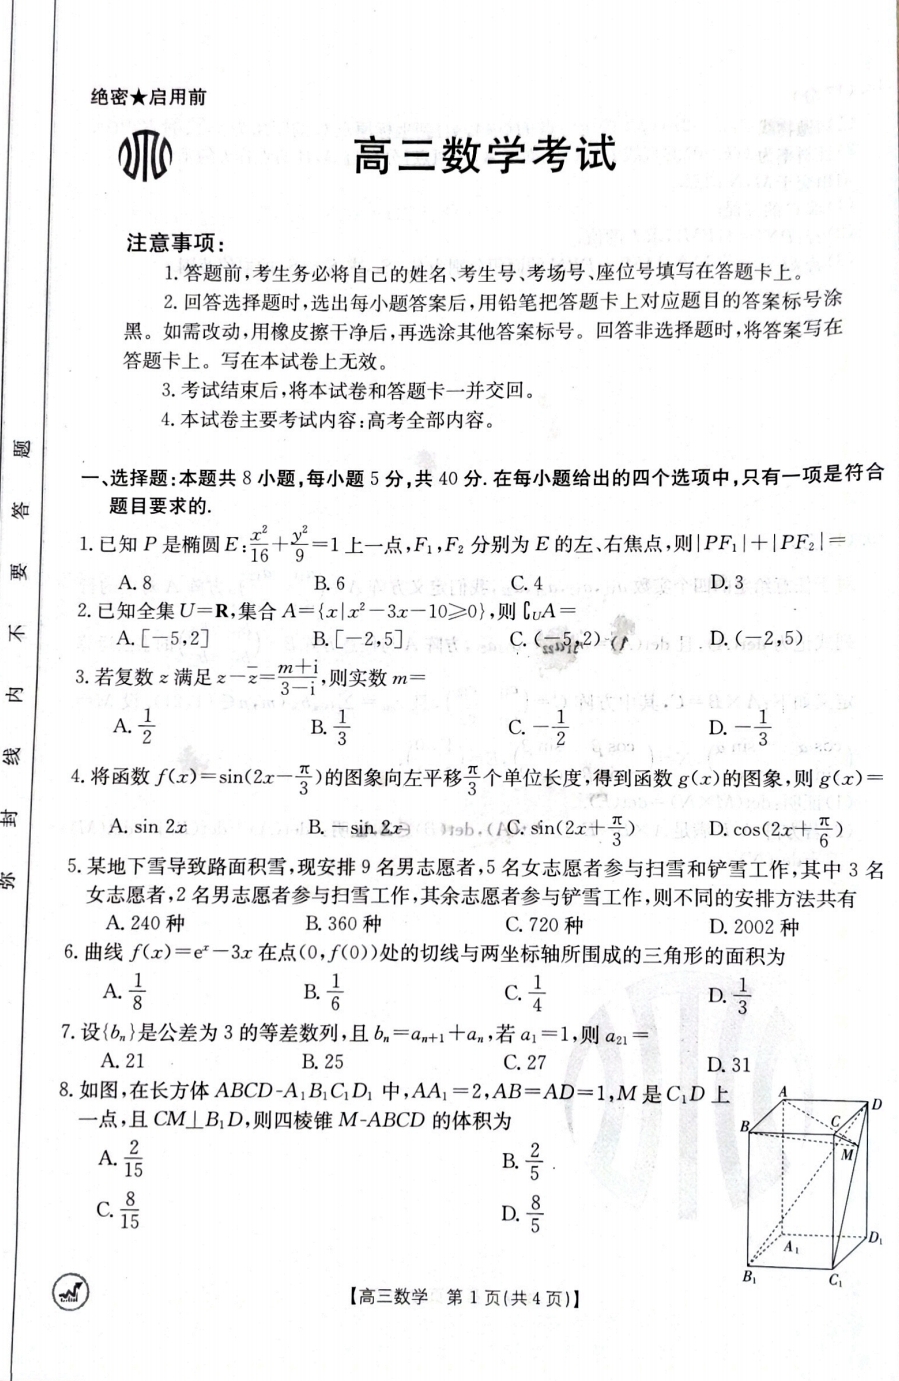 绝密★启用前
高三数学考试
注意事项:
1.答题前,考生务必将自己的姓名、考生号、考场号、座位号填写在答题卡上。
2.回答选择题时,选出每小题答案后,用铅笔把答题卡上对应题目的答案标号涂
黑。如需改动,用橡皮擦干净后,再选涂其他答案标号。回答非选择题时,将答案写在
答题卡上。写在本试卷上无效。
3.考试结束后,将本试卷和答题卡一并交回。
4.本试卷主要考试内容:高考全部内容。
一、选择题:本题共8小题,每小题5分,共40分.在每小题给出的四个选项中,只有一项是符合
题目要求的.
1.已知P是椭圆E:x²/16+y²/9=1上一点,F₁,F₂分别为E的左、右焦点,则|PF₁|+|PF₂|=
A.8 B.6 C.4 D.3
2.已知全集U=R,集合A={x|x²-3x-10≥0},则∁UA=
A.[-5,2] B.[-2,5] C.(-5,2) D.(-2,5)
3.若复数z满足z-z̄=(m+i)/(3-i),则实数m=
A.1/2 B.1/3 C.-1/2 D.-1/3
4.将函数f(x)=sin(2x-π/3)的图象向左平移π/3个单位长度,得到函数g(x)的图象,则g(x)=
A.sin 2x B.-sin 2x C.sin(2x+π/3) D.cos(2x+π/6)
5.某地下雪导致路面积雪,现安排9名男志愿者,5名女志愿者参与扫雪和铲雪工作,其中3名
女志愿者,2名男志愿者参与扫雪工作,其余志愿者参与铲雪工作,则不同的安排方法共有
A.240种 B.360种 C.720种 D.2002种
6.曲线f(x)=eˣ-3x在点(0,f(0))处的切线与两坐标轴所围成的三角形的面积为
A.1/8 B.1/6 C.1/4 D.1/3
7.设{bₙ}是公差为3的等差数列,且bₙ=aₙ₊₁+aₙ,若a₁=1,则a₂₁=
A.21 B.25 C.27 D.31
8.如图,在长方体ABCD-A₁B₁C₁D₁中,AA₁=2,AB=AD=1,M是C₁D上
一点,且CM⊥B₁D,则四棱锥M-ABCD的体积为
A.2/15 B.2/5
C.8/15 D.8/5
A
D
B
C
M
A₁
D₁
B₁
C₁
【高三数学 第1页(共4页)】
弥 封 线 内 不 要 答 题